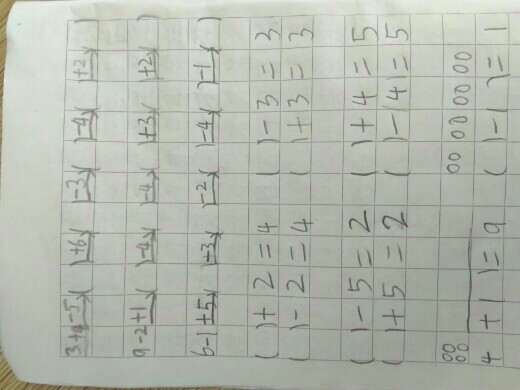 3+4-5( )+6( )-3( )-4( )+2( )
9-2+1( )-4( )-4( )+3( )+2( )
6-1+5( )+3( )-2( )-4( )-1( )
( )+2=4 ( )-3=3
( )-2=4 ( )+3=3
( )-5=2 ( )+4=5
( )+5=2 ( )-4=5
4+( )=9 ( )-( )=1